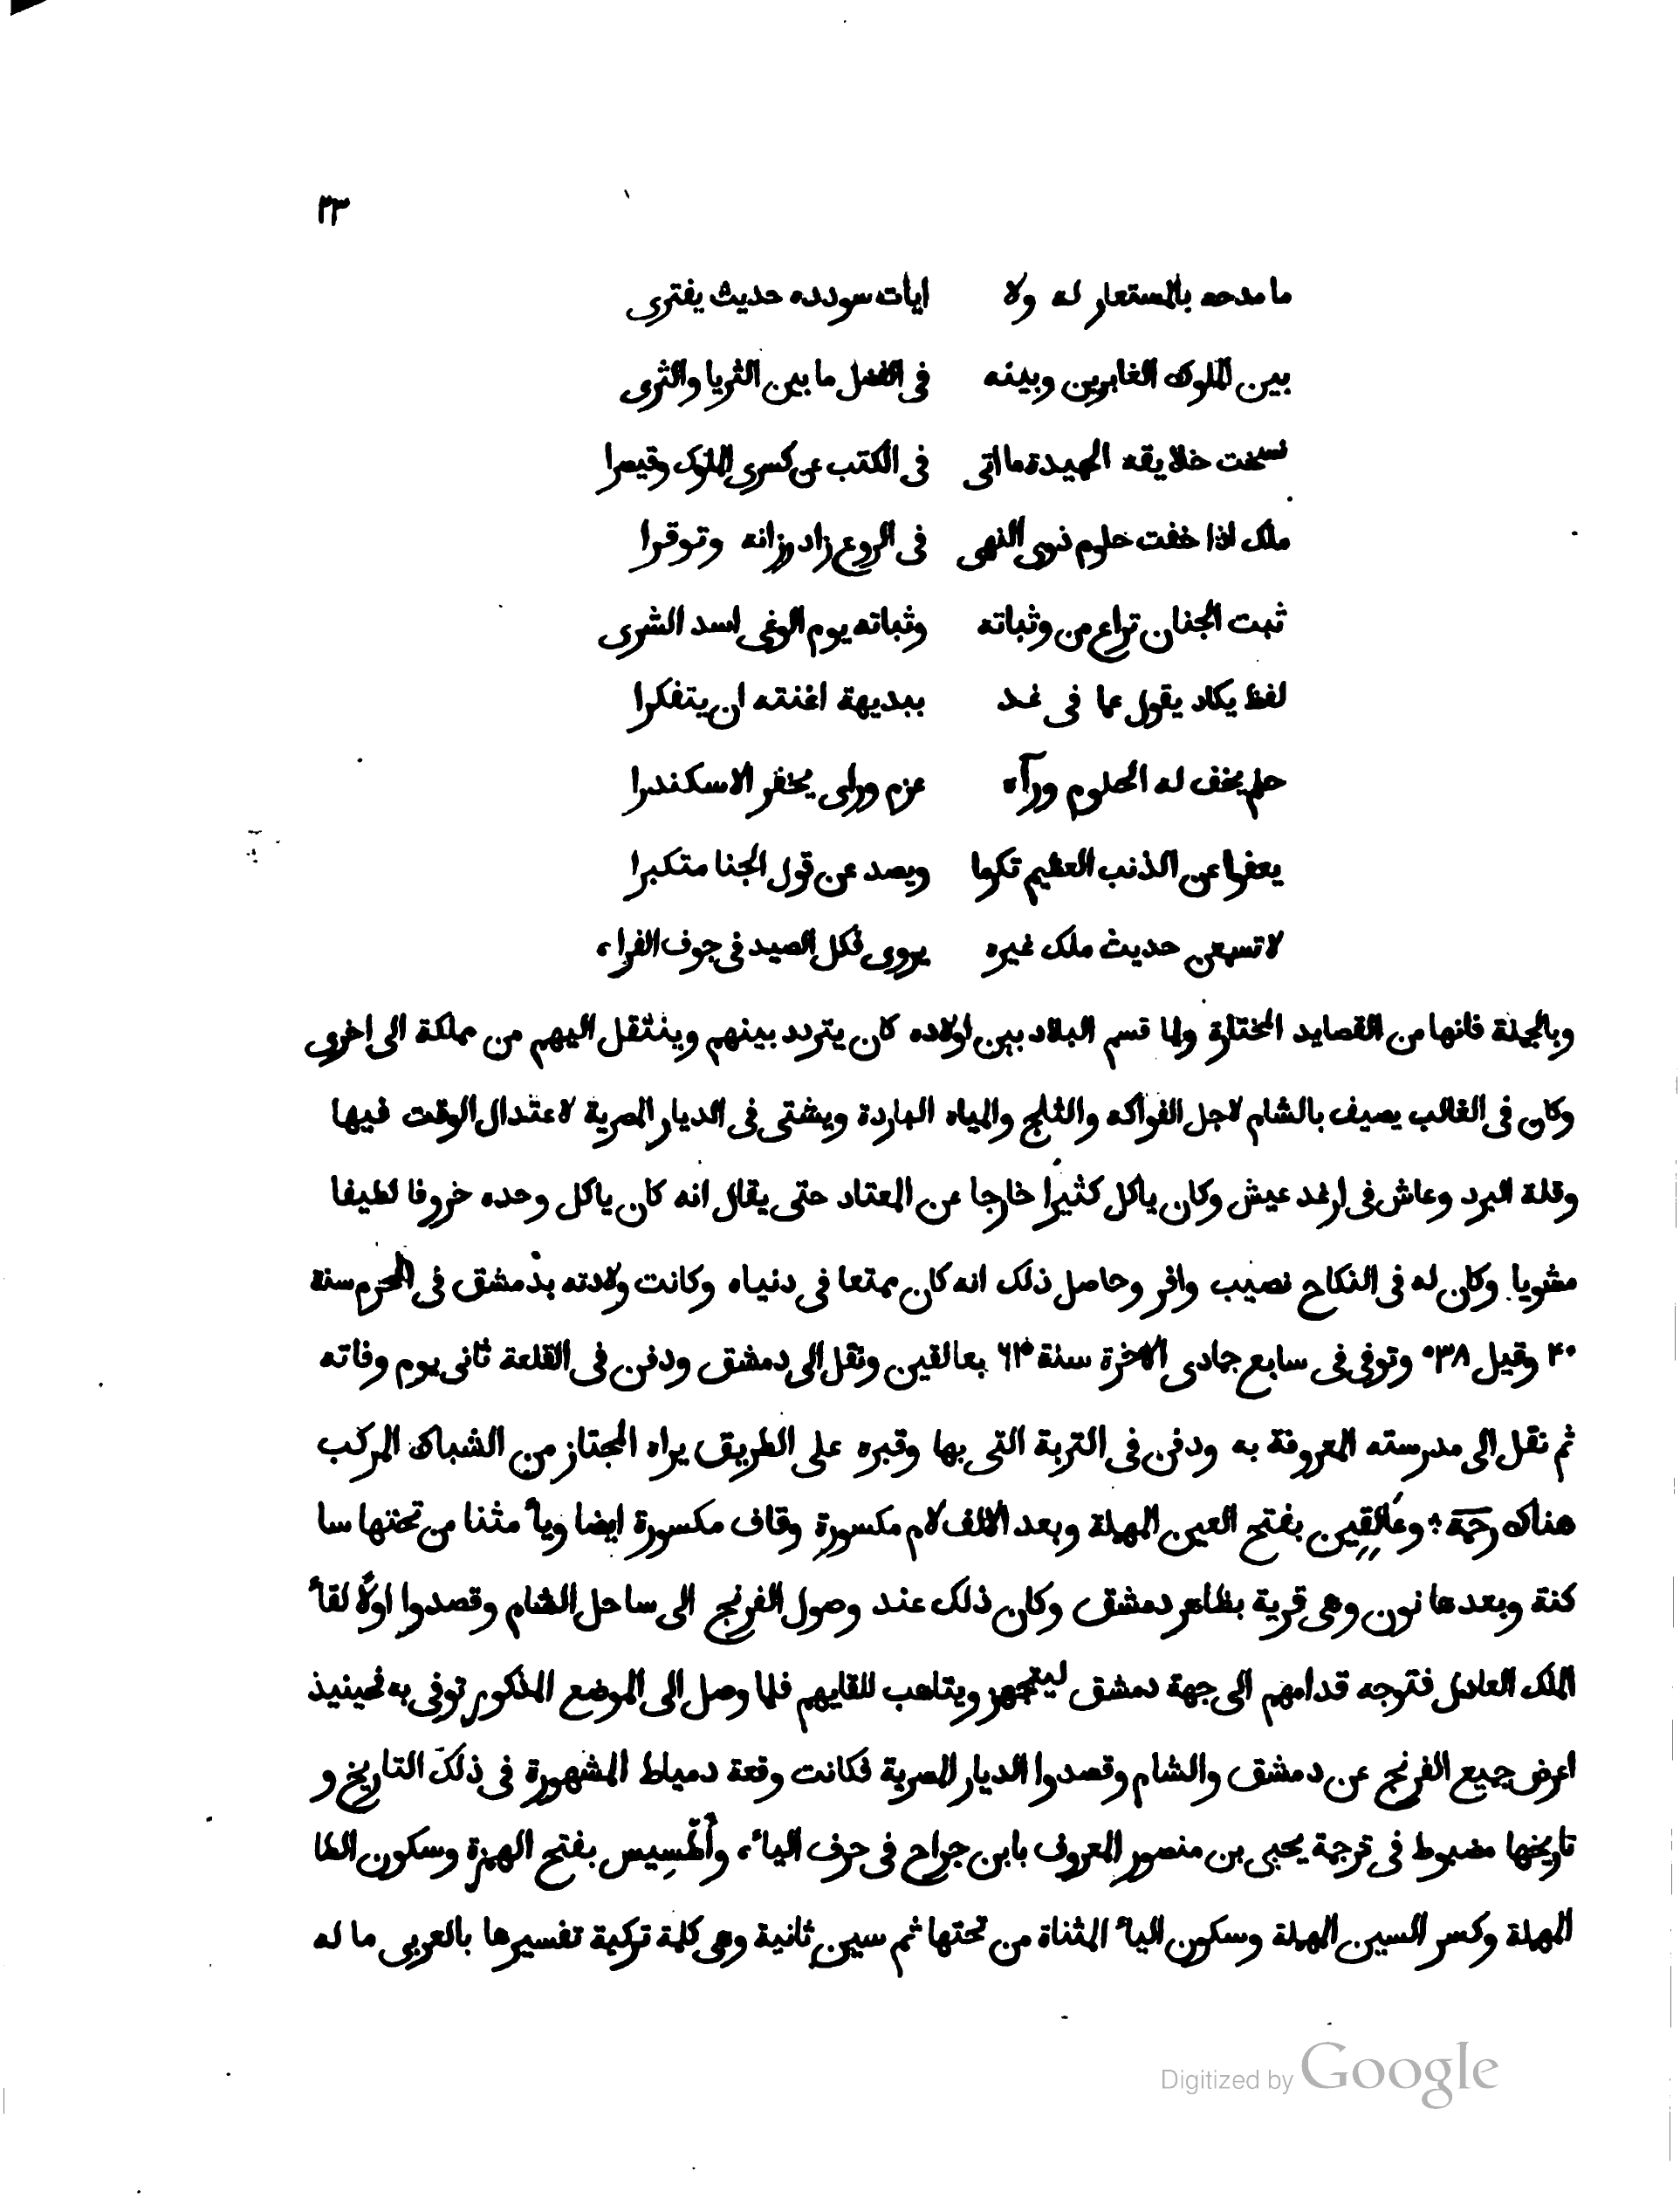 ٢٣
ما مدحه بالمستعار له ولا ايات سودده حديث يفترى
بين الملوك الغابرين وبينه فى الفضل ما بين الثريا والثرى
نسخت خلايقه الحميدة ما اتى فى الكتب عن كسرى الملوك وقيصرا
ملك اذا خفت حلوم ذوى النهى فى الروع زاد رزانه وتوقرا
ثبت الجنان تراع من وثباته وثباته يوم الوغى اسد الشرى
لفظ يكاد يقول عما فى غد ببديهة اغنته ان يتفكرا
حلم يخف له الحلوم ورآه عزم وراى يحقر الاسكندرا
يعفوا عن الذنب العظيم تكرما ويصد عن قول الجنا متكبرا
لا تسمعن حديث ملك غيره يروى فكل الصيد فى جوف الفراء
وبالجملة فانها من القصايد المختارة ولما قسم البلاد بين اولاده كان يتردد بينهم وينتقل اليهم من مملكة الى اخرى
وكان فى الغالب يصيف بالشام لاجل الفواكه والثلج والمياه الباردة ويشتى فى الديار المصرية لاعتدال الوقت فيها
وقلة البرد وعاش فى ارغد عيش وكان ياكل كثيرا خارجا عن المعتاد حتى يقال انه كان ياكل وحده خروفا لطيفا
مشويا وكان له فى النكاح نصيب وافر وحاصل ذلك انه كان ممتعا فى دنياه وكانت ولادته بدمشق فى المحرم سنة
٠ وقيل ٥٣٨ وتوفى فى سابع جمادى الاخرة سنة بعالقين ونقل الى دمشق ودفن فى القلعة ثانى يوم وفاته
ثم نقل الى مدرسته المعروفة به ودفن فى التربة التى بها وقبره على الطريق يراه المجتاز من الشباك المركب
هناك رحمة وعَالِقِين بفتح العين المهملة وبعد الالف لام مكسورة وقاف مكسورة ايضا ويأ مثنا من تحتها سا
كنة وبعدها نون وهى قرية بظاهر دمشق وكان ذلك عند وصول الفرنج الى ساحل الشام وقصدوا اولًا لقأ
الملك العادل فتوجه قدامهم الى جهة دمشق ليتجهز ويتاهب للقايهم فلما وصل الى الموضع المذكور توفى به فحينيذ
اعرض جميع الفرنج عن دمشق والشام وقصدوا الديار المصرية فكانت وقعة دمياط المشهورة فى ذلك التاريخ و
تاريخها مضبوط فى ترجمة يحيى بن منصور المعروف بابن جراح فى حرف اليأ، وأَطْسِيس بفتح الهمزة وسكون الطا
المهملة وكسر السين المهملة وسكون اليأ المثناة من تحتها ثم سين ثانية وهى كلمة تركية تفسيرها بالعربى ما له
Digitized by Google